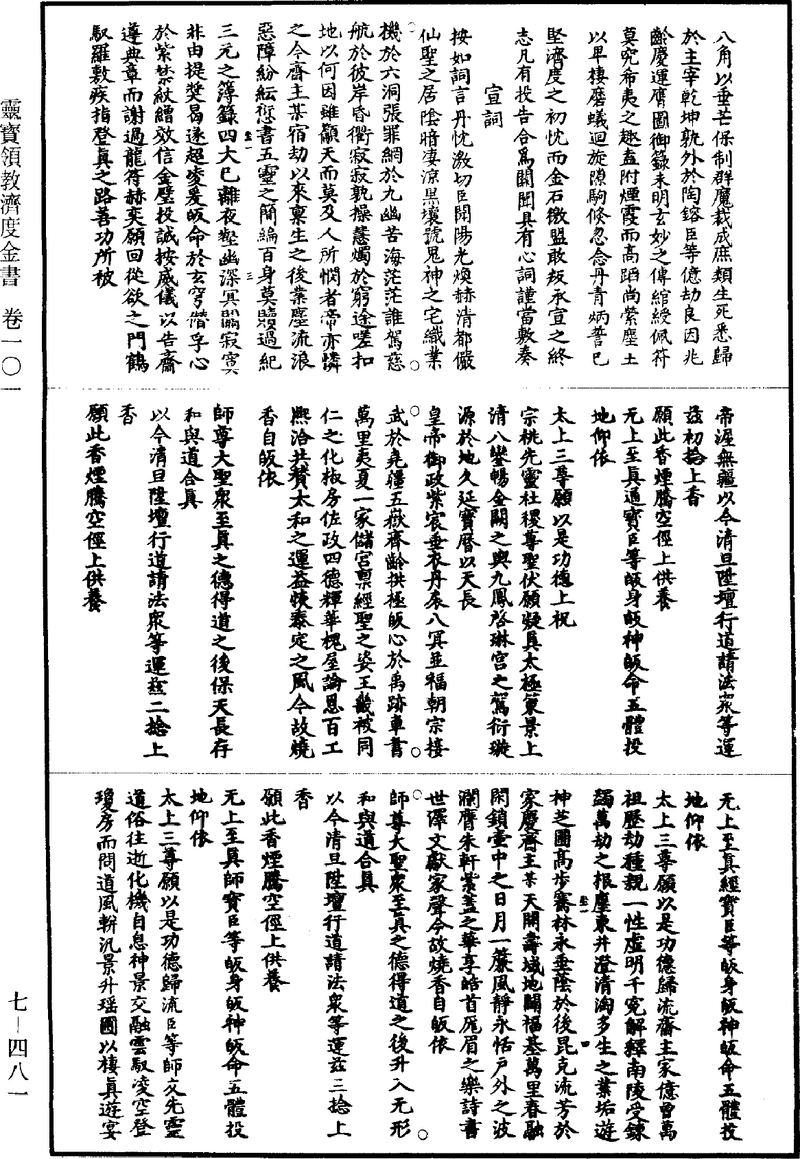 八角以垂芒保制群魔裁成庶類生死悉歸
於主宰乾坤孰外於陶鎔臣等億劫良因兆
齡慶運膺圖御籙未明玄妙之傳綰綬佩符
莫究希夷之趣盍附煙霞而高蹈尚縈塵土
以卑棲磨蟻迴旋隙駒倏忽念丹青炳誓已
堅濟度之初忱而金石微盟敢扳承宣之終
志凡有投告合爲關聞具有心詞謹當敷奏
宣詞
按如詞言丹忱激切臣聞陽光煥赫清都儼
仙聖之居陰暗凄涼黑壤號鬼神之宅織業
機於六洞張罪網於九幽苦海茫茫誰駕慈
航於彼岸昏衢寂寂孰操慧燭於窮途嗟扣
地以何因雖籲天而莫及人所憫者帝亦憐
之今齋主某宿劫以來禀生之後業塵流浪
惡障紛紜愆書五靈之簡編百身莫贖過紀
三元之簿錄四大已離夜壑幽深冥關寂寞
非由提奬曷遂超凌爰皈命於玄穹僭孚心
於紫禁紋繒效信金璧投誠按威儀以告齋
遵典章而謝過龍符赫奕願回從欲之門鶴
馭羅敷疾指登真之路善功所被
帝渥無疆以今清旦陞壇行道請法衆等運
茲初捻上香
願此香煙騰空徑上供養
无上至真道寶臣等皈身皈神皈命五體投
地仰依
太上三尊願以是功德上祝
宗祧先靈社稷尊聖伏願凝真太極策景上
清八鑾暢金闕之輿九鳳啓琳宮之駕衍璇
源於地久延寶曆以天長
皇帝御政紫宸垂衣丹扆八冥並福朝宗接
武於堯疆五嶽齊齡拱極皈心於禹跡車書
萬里夷夏一家儲宮禀經聖之姿王畿被同
仁之化椒房佐政四德輝華槐屋論恩百工
熙洽共贊太和之運益恢泰定之風今故燒
香自皈依
師尊大聖衆至真之德得道之後保天長存
和與道合真
以今清旦陞壇行道請法衆等運茲二捻上
香
願此香煙騰空徑上供養
无上至真經寶臣等皈身皈神皈命五體投
地仰依
太上三尊願以是功德歸流齋主家億曾萬
祖歷劫種親一性虛明千冤解釋南陵受鍊
蠲萬劫之根塵東井澄清淘多生之業垢遊
神芝圃高步騫林永垂陰於後昆克流芳於
家慶齋主某天開壽域地闢福基萬里春融
閑鎖壺中之日月一簾風靜永恬戶外之波
瀾膺朱軒紫蓋之華享皓首厖眉之樂詩書
世澤文獻家聲今故燒香自皈依
師尊大聖衆至真之德得道之後升入无形
和與道合真
以今清旦陞壇行道請法衆等運茲三捻上
香
願此香煙騰空徑上供養
无上至真師寶臣等皈身皈神皈命五體投
地仰依
太上三尊願以是功德歸流臣等師友先靈
道俗往逝化機自息神景交融雲馭凌空登
瓊房而問道風軿汎景升瑶圃以棲真遊宴
靈寶領教濟度金書 卷一〇一
七—四八一